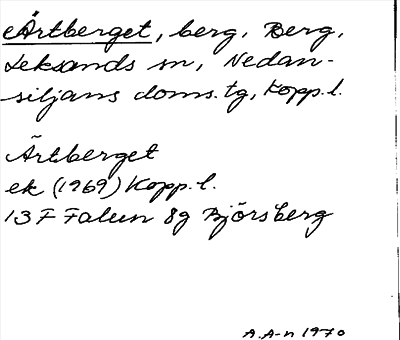 Ärtberget, berg, Berg,
Leksands sn, Nedan-
siljans doms.tg, Kopp.l.
Ärtberget
ek (1969) Kopp.l.
13 F Falun 8g Björsberg
A.A-n 1970